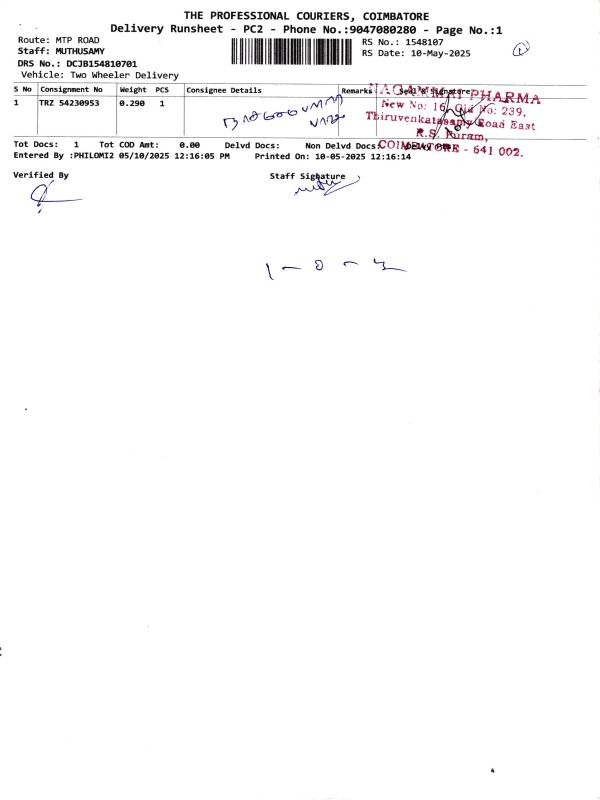 THE PROFESSIONAL COURIERS, COIMBATORE
Delivery Runsheet - PC2 - Phone No.:9047080280 - Page No.:1
Route: MTP ROAD
RS No.: 1548107
Staff: MUTHUSAMY
RS Date: 10-May-2025
DRS No.: DCJB154810701
Vehicle: Two Wheeler Delivery
S No Consignment No Weight PCS Consignee Details Remarks Seal & Signature
1 TRZ 54230953 0.290 1
PHARMA
New No: 16, Old No: 239,
Thiruvenkatasamy Road East
R.S. Puram,
COIMBATORE - 641 002.
Tot Docs: 1 Tot COD Amt: 0.00 Delvd Docs: Non Delvd Docs:
Entered By :PHILOMI2 05/10/2025 12:16:05 PM Printed On: 10-05-2025 12:16:14
Verified By Staff Signature
1 - 0 -